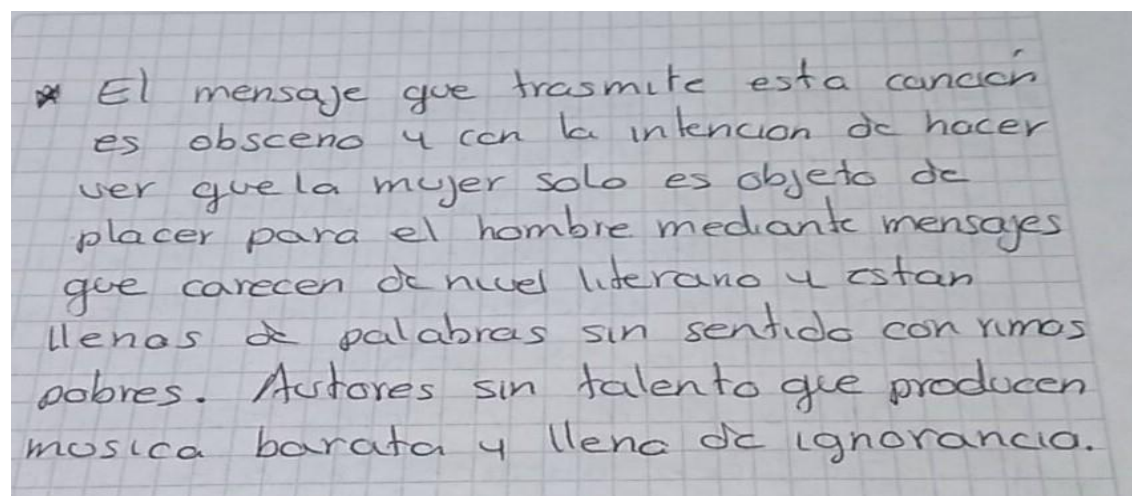 * El mensaje que trasmite esta canción
es obsceno y con la intencion de hacer
ver que la mujer solo es objeto de
placer para el hombre mediante mensajes
que carecen de nivel literario y estan
llenas de palabras sin sentido con rimas
pobres. Autores sin talento que producen
musica barata y llena de ignorancia.